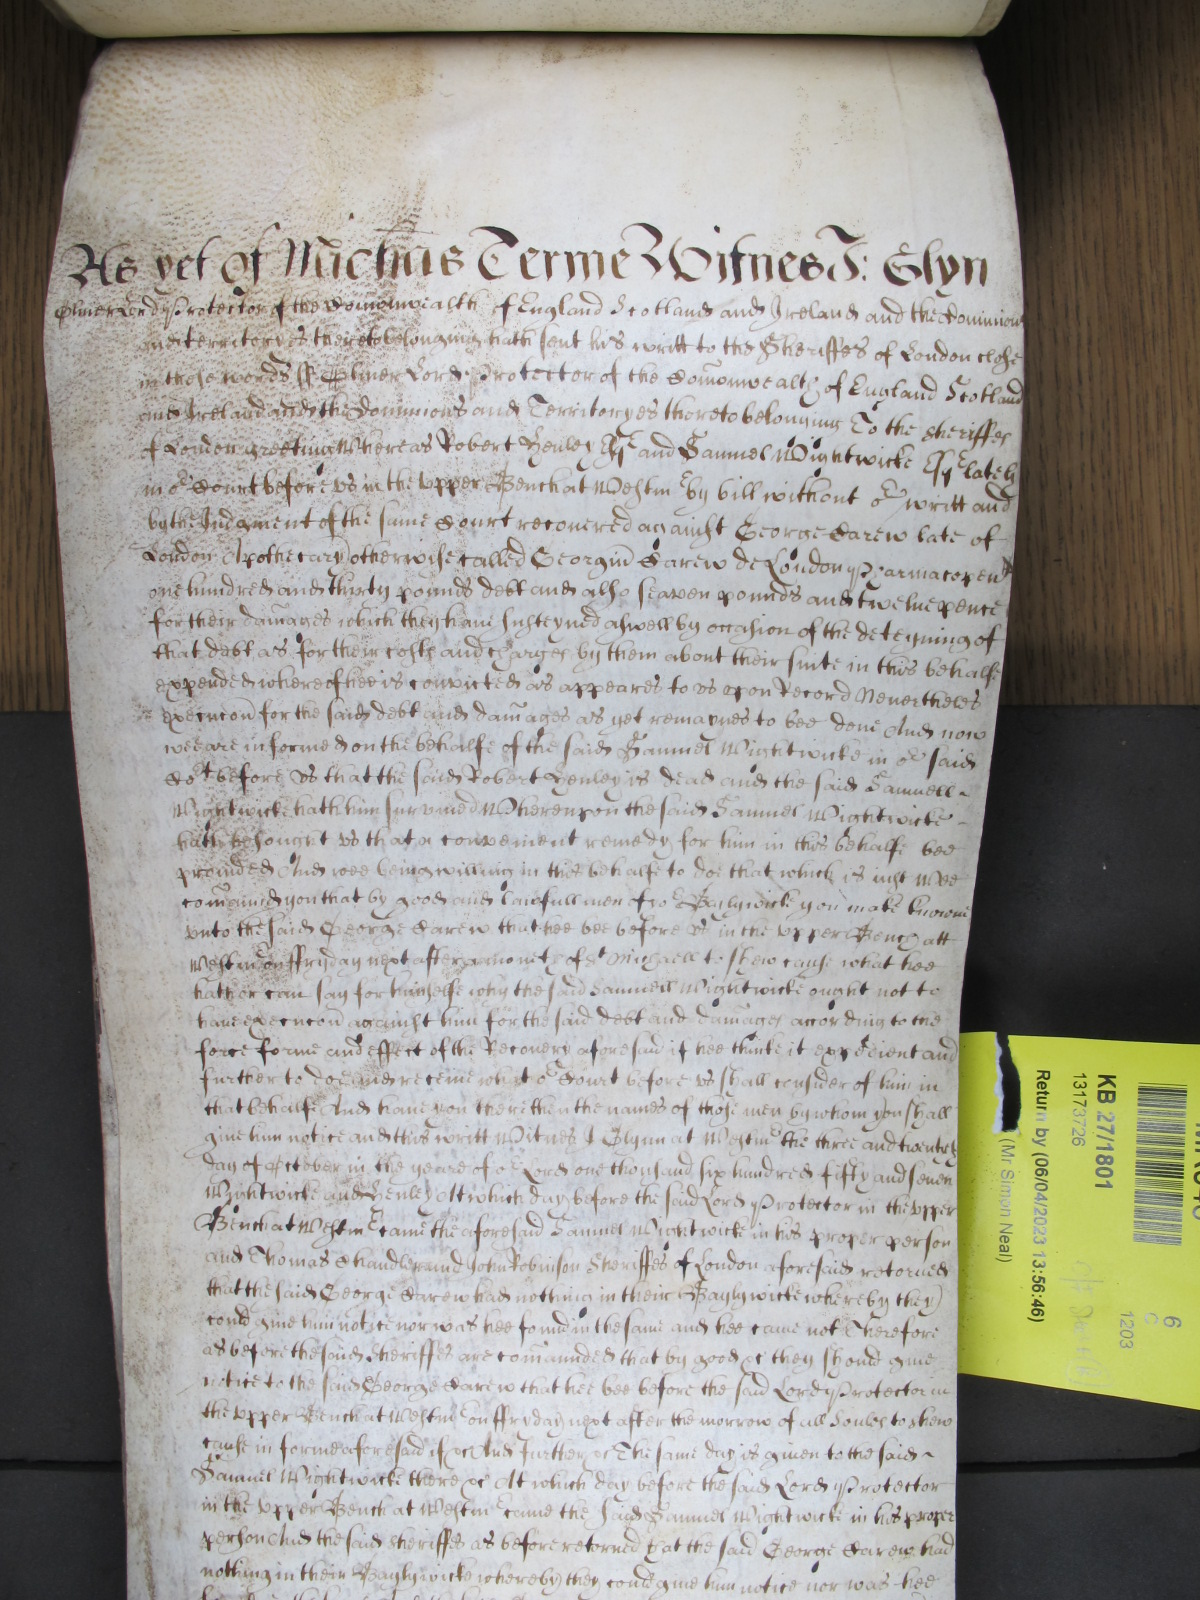 As yet of Michīs Terme Witnes J: Glyn
Oliver Lord Protector of the Comonwealth of England Scotland and Ireland and the Dominions
and territoryes thereto belonging hath sent his writt to the Sheriffes of London close
in these words ss Oliver Lord Protector of the Comonwealth of England Scotland
and Ireland and the Dominions and Territoryes thereto belonging To the Sheriffes
of London greeting Whereas Robert Henley Esqr and Samuel Wightwicke Esqr lately
in or Court before us in the upper Bench at Westmr by bill without or writt and
by the Judgment of the same Court recovered against George Carew late of
London Apothecary otherwise called Georgiū Carew de London Pharmacopen
one hundred and thirty pounds debt and also seaven pounds and twelve pence
for their damages which they have susteyned aswell by occasion of the deteyning of
that debt as for their costs and charges by them about their suite in this behalfe
expended whereof hee is convicted as appeares to us upon Record Nevertheles
execucon for the said debt and damages as yet remaynes to bee done And now
wee are informed on the behalfe of the said Samuel Wightwicke in or said
Cort before us that the said Robert Henley is dead and the said Samuell
Wightwicke hath him survived Whereupon the said Samuel Wightwicke
hath besought us that a convenient remedy for him in this behalfe bee
provided And wee being willing in this behalfe to doe that which is just Wee
comaund you that by good and lawfull men of yor Baylywicke you make knowne
unto the said George Carew that hee bee before us in the upper Bench att
Westmr on ffryday next after a moneth of St Michaell to shew cause what hee
hath or can say for himselfe why the said Samuell Wightwicke ought not to
have execucon against him for the said debt and damages according to the
force forme and effect of the Recovery aforesaid if hee thinke it expedient and
further to doe and receive what or Court before us shall consider of him in
that behalfe And have you there then the names of those men by whom you shall
give him notice and this writt Witnes J Glynn at Westmr the three and twentyth
day of October in the yeare of or Lord one thousand six hundred fifty and seven
Wightwicke and Henley At which day before the said Lord Protector in the upper
Bench at Westmr came the aforesaid Samuel Wightwicke in his proper person
and Thomas Chandler and John Robinson Sheriffes of London aforesaid retorned
that the said George Carew had nothing in their Baylywicke whereby they
could give him notice nor was hee found in the same and hee came not Therefore
as before the said Sheriffes are comaunded that by good &c they should give
notice to the said George Carew that hee bee before the said Lord Protector in
the upper Bench at Westmr on ffryday next after the morrow of all Soules to shew
cause in forme aforesaid if &c And further &c The same day is given to the said
Samuel Wightwicke there &c At which day before the said Lord Protector
in the upper Bench at Westmr came the said Samuel Wightwicke in his proper
person And the said Sheriffes as before retorned that the said George Carew had
nothing in their Baylywicke whereby they could give him notice nor was hee
KB 27/1801
13173726
Return by (06/04/2023 13:56:46)
(Mr Simon Neal)
6
C
1203